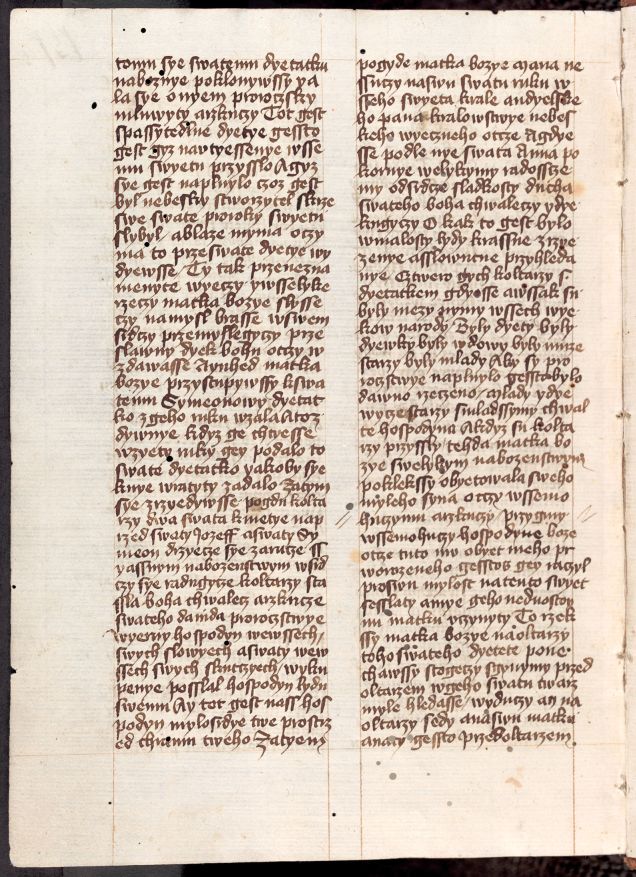 tomu sye swatemu dyetatku
naboznye poklonywssy y a
la sye o nyem proroczsky
mluwyty arzkuczy Tot gest
spassytedlne dyetye gessto
gest gyz na wtyessenye wsse
mu swyetu przysslo A gyz
sye gest naplnylo czoz gest
byl nebesky stworzytel skrze
swe swate proroky swyetu
slybyl ablaze myma oczy
ma to przeswate dyetye wy
dyewsse Ty tak przenezna
menyte wyeczy ywsselyke
rzeczy matka bozye slysse
czy namysl brasse wswem
sirdczy przemysslegyczy prze
slawny dyek bohu otczy w
zdawasse Aynhed matka
bozye przystupywssy kswa
temu Symeonowy dyetat
ko zgeho ruku wzala Atoz
dywnye kdyz ge chtyesse
wzyety niky gey podalo to
swate dyetatko yakoby sye
knye wratyty zadalo Zatym
sye zrzyedywsse pogdu kolta
rzy dwa swata kmetye nap
rzed swaty Jozeff aswaty Sy
meon drzyecze sye zaruce ss
yassnym nabozenstwym wsrd
czy sye radugycze koltarzy sta
ssta boha chwalecz arzkucze
swateho dawida proroczstwye
wyerny hospodyn wewssech
swych slowyech aswaty wew
ssech swych skutczyech wyku
penye posslal hospodyn lydu
swemu Ay tot gest nass hos
podyn mylosrdye twe prostrz
ed chramu tweho Zatyem
pogyde matka bozye maria ne
ssuczy naswu swatu ruku w
sseho swyeta krale andyelske
ho pana kralowstwye nebes
keho wyeczneho otcze Agdye
sse podle nye swata Anna po
kornye welykymy radosstze
my odsrdcze sladkosty ducha
swateho boha chwaleczy ydye
kugyczy O kak to gest bylo
wmalosty lydy krassne zrzye
zenye asslowutne przyhleda
nye Cztwero gych koltarzy s
dyetatkem gdyesse awssak su
byly mezy nymy wssech wye
kow narody Byly dyety byly
dyewky byly wdowy byly muze
starzy byly mlady Aby sy pro
roczstwye naplnylo gesstobylo
dawno rzeczeno mlady ydye
wycze starzy smladssymy chwal
te hospodyna Akdyz su kolta
rzy przyssly tehda matka bo
zye swelykym nabozenstwym
poklekssy obyetowala sweho
myleho syna otczy wssemo
huczymu arzkuczy przygmy
wssemohuczy hospodyne boze
otcze tuto mu obyet meho pr
worozeneho gesstos gey raczyl
proswu mylost natento swyet
sesslaty amye geho nedostoy
nu matku vczynyty To rzek
ssy matka bozye naoltarzy
toho swateho dyetete pone
chawssy stogeczy sgynymy przed
oltarzem wgeho swatu twarz
myle hledasse wyduczy an na
oltarzy sedy anaswu matku
anaty gessto przedoltarzem